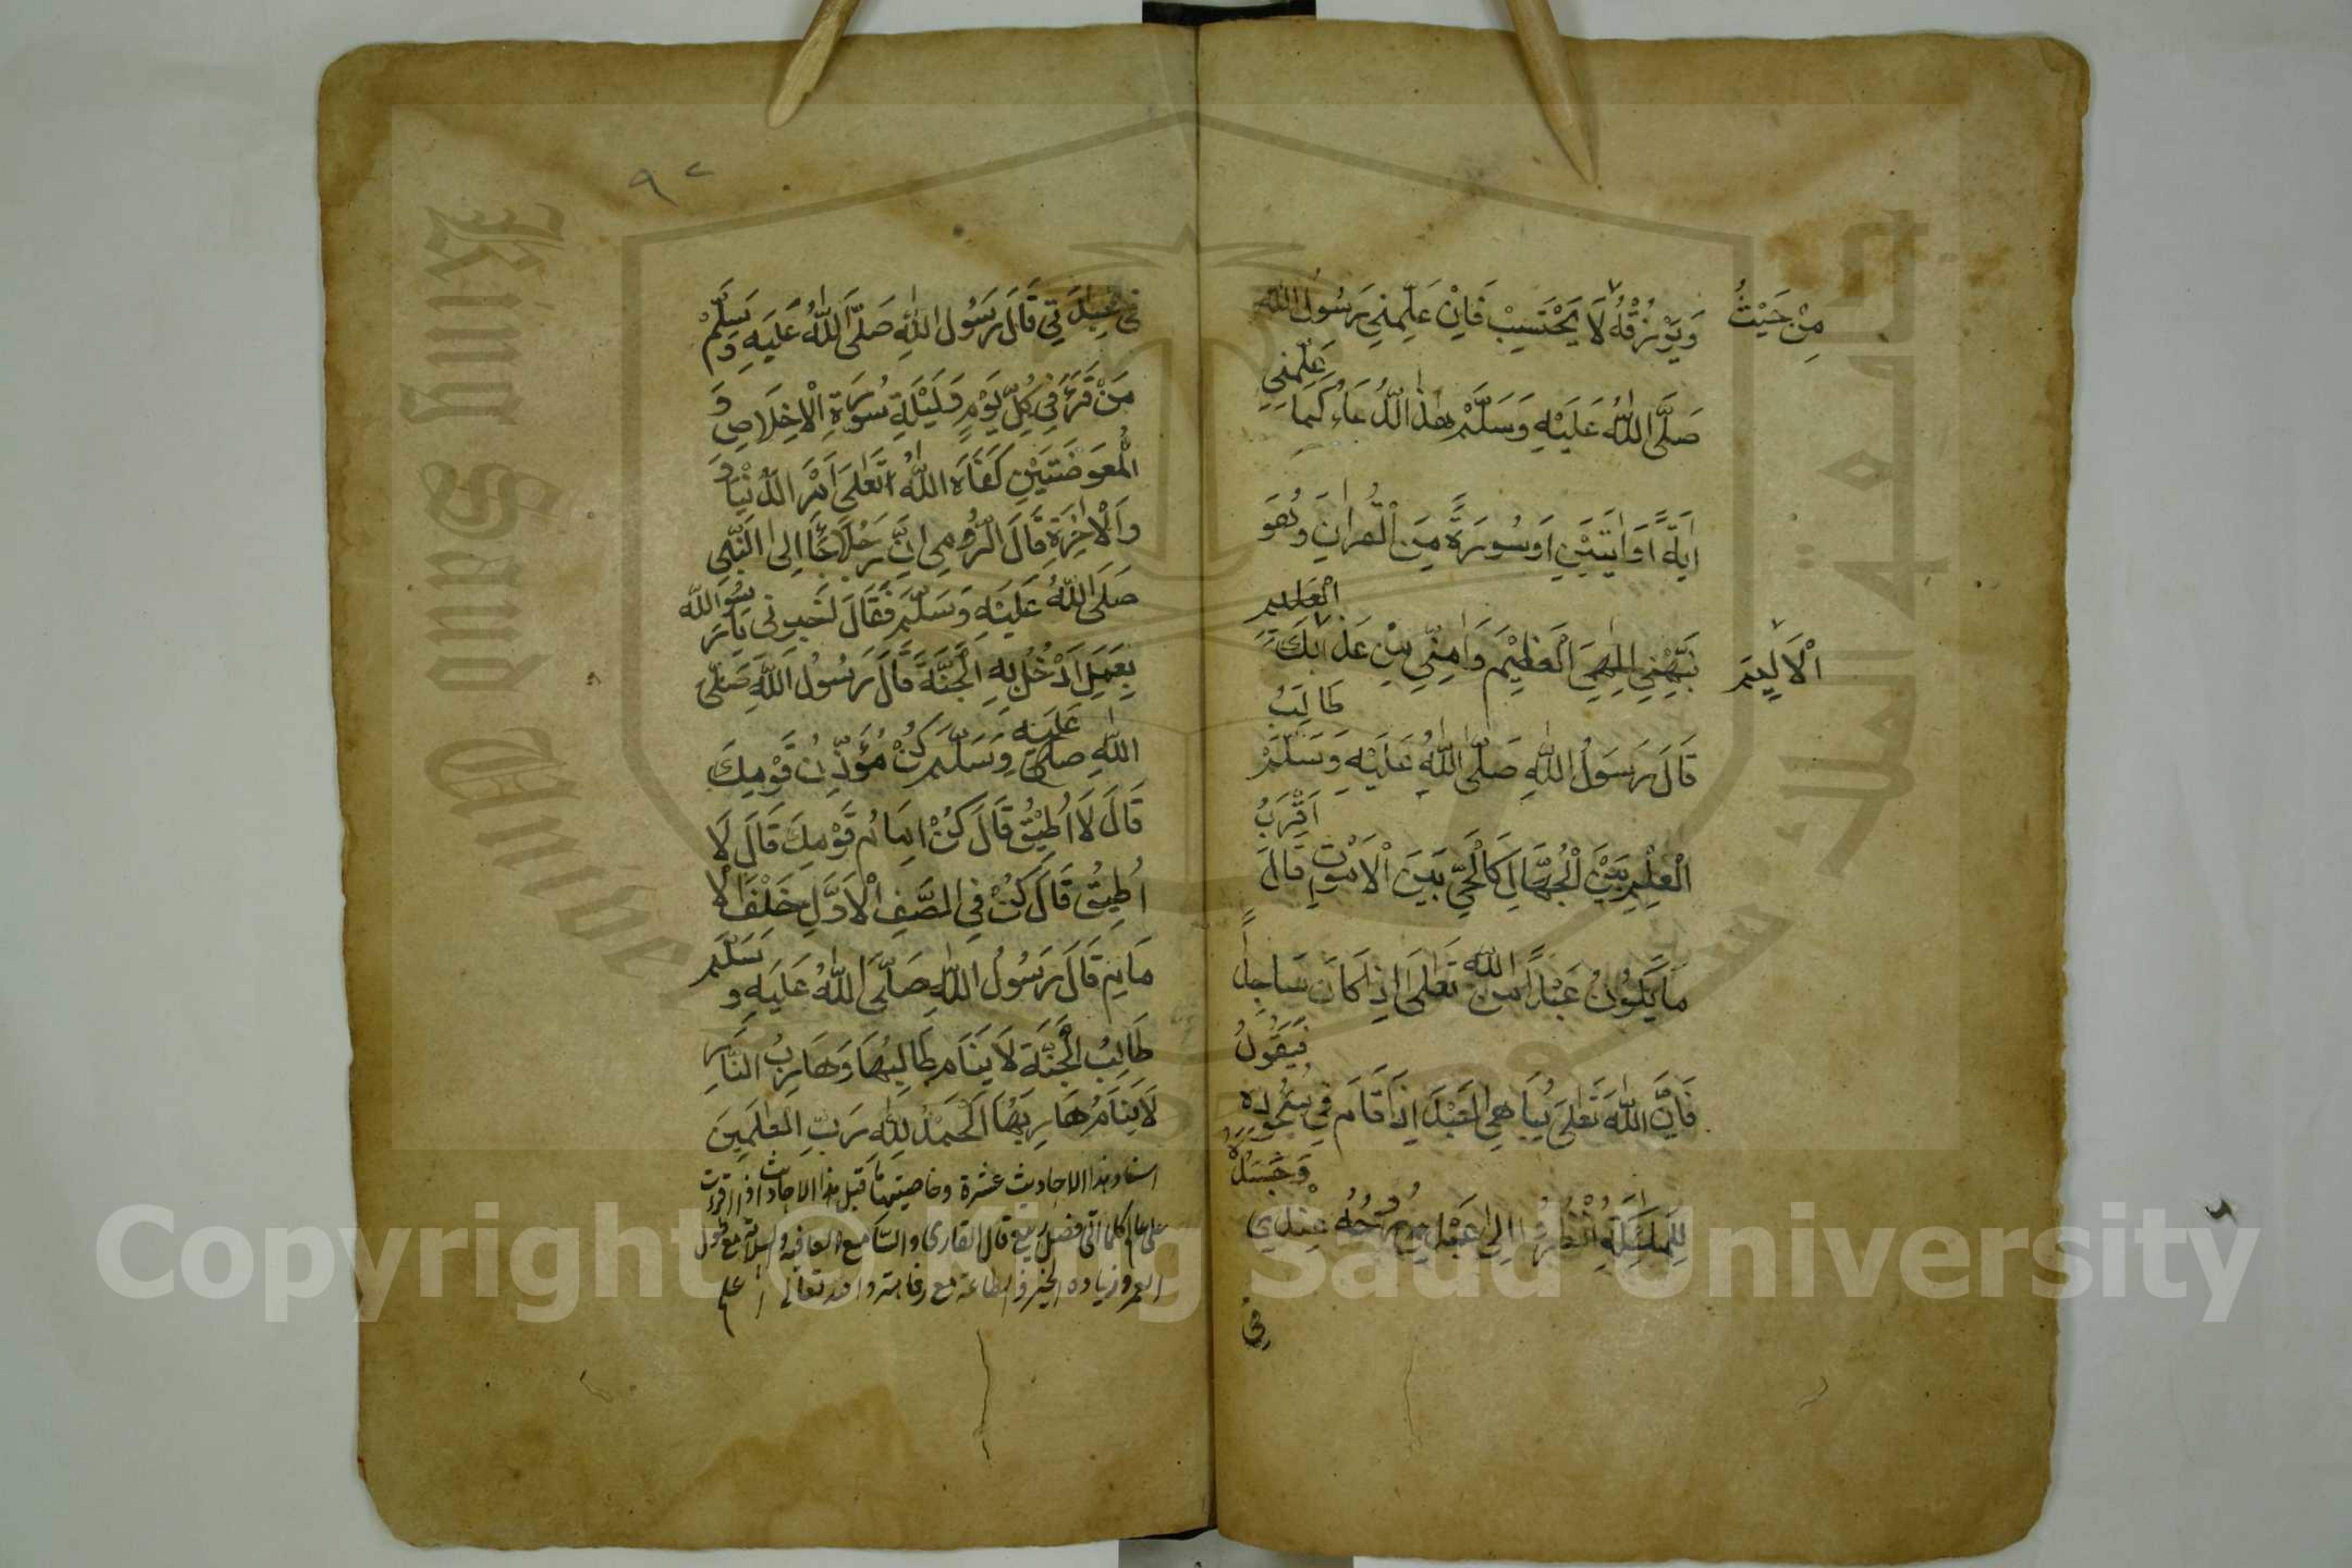 مِنْ حَيْثُ
وَيَرْزُقْهُ لَا يَحْتَسِبْ فَاِنْ عَلِّمْنِي رَسُولُ اللّٰهِ
عَلِّمْنِي
صَلَّى اللّٰهُ عَلَيْهِ وَسَلَّمْ هٰذَا الدُّعَاءِ كَمَا
اٰيَةً اَوْ اٰيَتَيْنِ اَوْ سُورَةً مِنَ الْقُرْاٰنِ وَهُوَ
الْعَلِيمِ
الْاَلِيمَ
نَبِّهْنِي اِلٰهِيَ الْعَظِيْمَ وَاٰمِنِّي مِنْ عَذَابِكَ
طَالِبُ
قَالَ رَسُولُ اللّٰهِ صَلَّى اللّٰهُ عَلَيْهِ وَسَلَّمَ
اَقْرَبُ
الْعِلْمِ بَيْنَ الْجُهَّالِ كَالْحَيِّ بَيْنَ الْاَمْوٰتِ قَالَ
مَا يَكُونُ عَبْدًا مِنَ اللّٰهِ تَعَلَى اِذَا كَانَ سَاجِدًا
فَيَقُولُ
فَاِنَّ اللّٰهَ تَعَلَى يُبَاهِي الْعَبْدَ اِذَا قَامَ فِي سُجُودِهِ
وَجَسَدُهُ
لِلْمَلٰئِكَةِ انْظُرُوا اِلَى عَبْدِي رُوحُهُ عِنْدِي
فِي
٩٢
فِي عِبَدَتِي قَالَ رَسُولُ اللّٰهِ صَلَّى اللّٰهُ عَلَيْهِ وَسَلَّمْ
مَنْ قَرَءَ فِي كُلِّ يَوْمٍ وَلَيْلَةٍ سُورَةِ الْاِخْلَاصِ وَ
الْمُعَوِّضَتَيْنِ كَفَاهُ اللّٰهُ تَعَلَى اَمْرَ الدُّنْيَا وَ
وَالْاٰخِرَةِ قَالَ الرُّومِي اِنَّ رَجُلًا جَاَ اِلَى النَّبِي
صَلَى اللّٰهُ عَلَيْهِ وَسَلَّمَ فَقَالَ اَخْبِرْنِي يَا رَسُولَ اللّٰه
بِعَمَلٍ اَدْخُلُ بِهِ الْجَنَّةَ قَالَ رَسُولُ اللّٰهِ صَلَّى
اللّٰهِ صلى عَلَيْهِ وَسَلَّمَ كُنْ مُؤَذِّنُ قَوْمِكَ
قَالَ لَا اُطِيْقُ قَالَ كُنْ اِمَامُ قَوْمِكَ قَالَ لَا
اُطِيقُ قَالَ كُنْ فِي الصَّفِ الْاَوَّلِ خَلْفَ الْا
مَامِ قَالَ رَسُولُ اللّٰهِ صَلَّى اللّٰهُ عَلَيْهِ وَسَلَّمَ
طَالِبُ الْجَنَّةِ لَا يَنَامُ طَالِبُهَا وَهَارِبُ النَّارِ
لَا يَنَامُ هَارِبُهَا اَلْحَمْدُ لِلّٰهِ رَبِّ الْعٰلَمِينَ
اسناد هذا الاحاديث عشرة وخاصيتها قبل هذا الاحاديث اذا قرات
على قال القارى والسامع العافية والسلامة مع طول
العمر وزياده الخير والطاعة مع والله تعالى اعلم